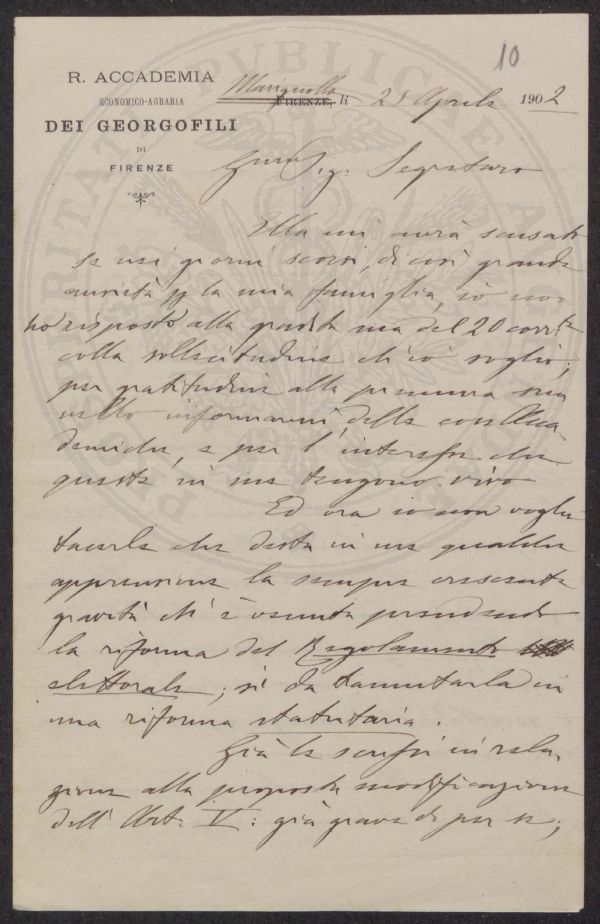 10
R. ACCADEMIA
ECONOMICO-AGRARIA
DEI GEORGOFILI
DI
FIRENZE
Marignolle
FIRENZE, li 25 Aprile 1902
Sig. Segretario
Ella mi avrà scusato
se nei giorni scorsi, di così grande
ansietà p la mia famiglia, io non
ho risposto alla gradita sua del 20 corrte
colla sollecitudine ch'io voglio;
per gratitudine alla premura sua
nello informarmi delle cose Acca-
demiche, e per l'interesse che
queste in me tengono vivo
Ed ora io non voglio
tacerle che desta in me qualche
apprensione la sempre crescente
gravità ch'è venuta prendendo
la riforma del Regolamento
elettorale; sì da tramutarla in
una riforma statutaria.
Già le scrissi in rela-
zione alla proposta modificazione
dell'Art. V: già grave di per se,
PUBLICAE
PROSPERITATI